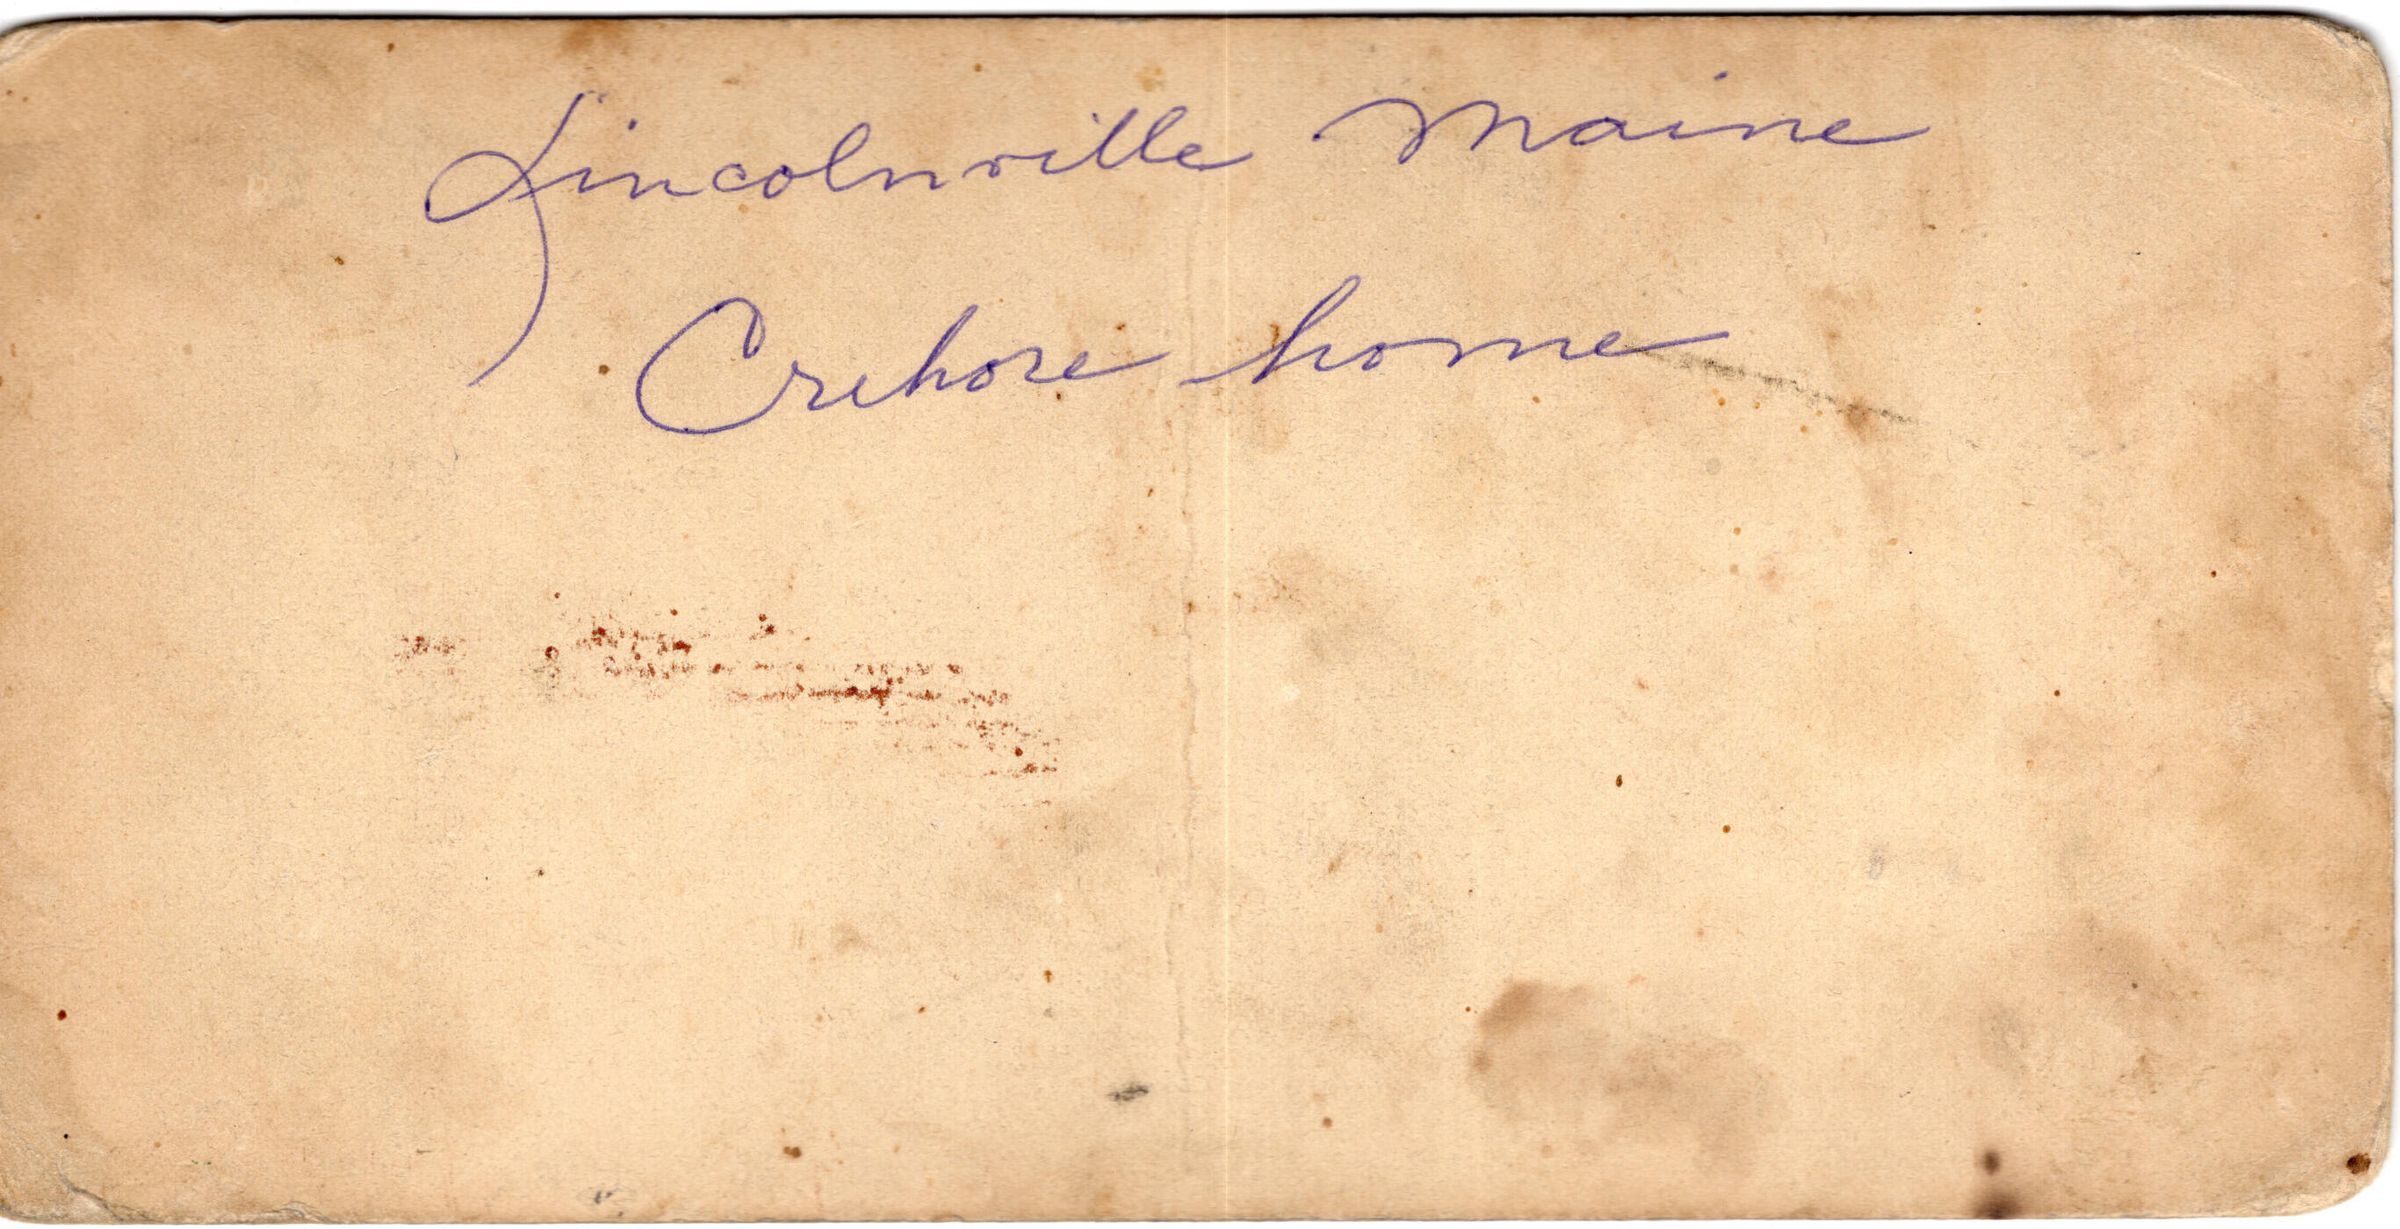 Lincolnville Maine
Crehore home